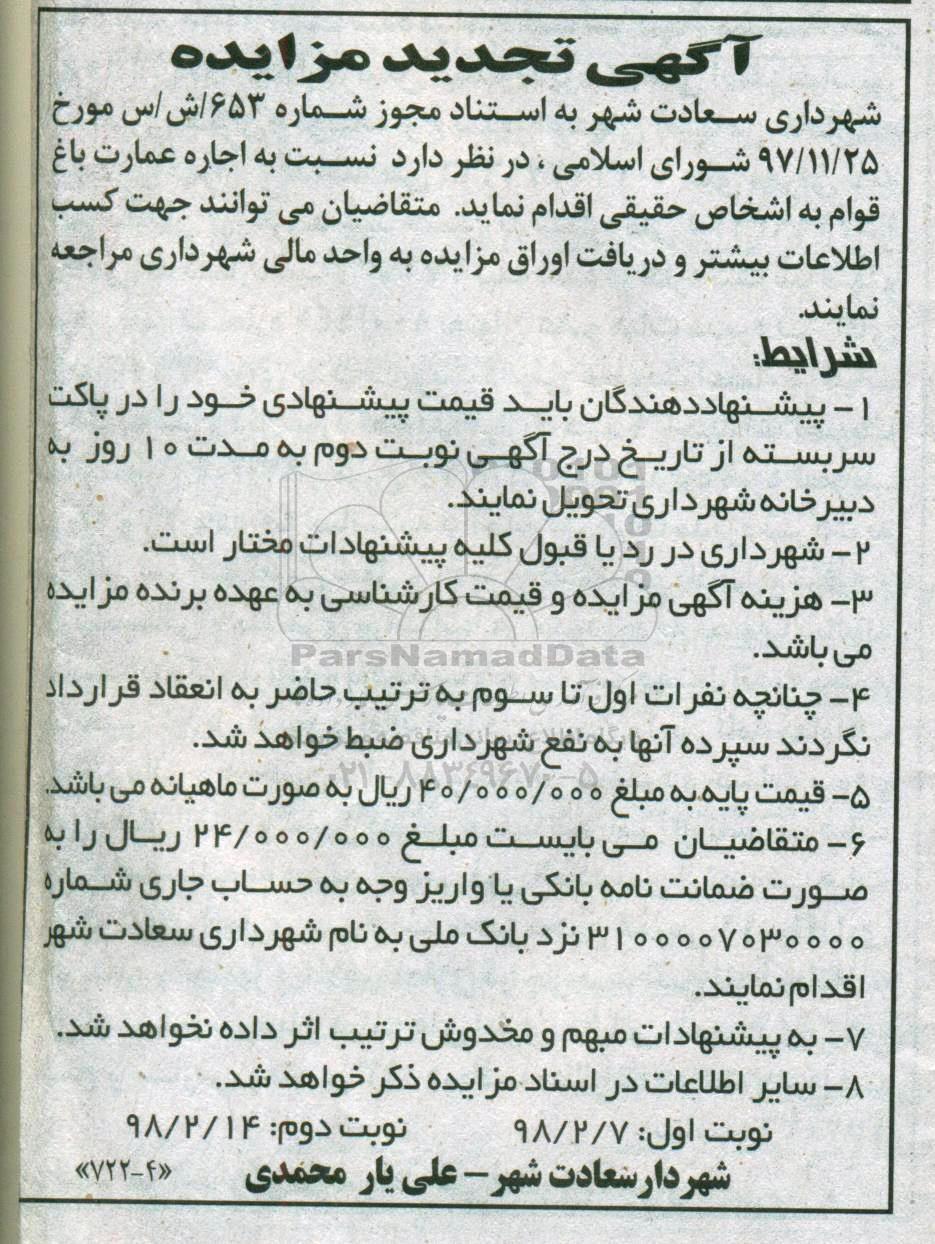 آگهی تجدید مزایده
شهرداری سعادت شهر به استناد مجوز شماره ۶۵۳/ش/س مورخ
۹۷/۱۱/۲۵ شورای اسلامی ، در نظر دارد نسبت به اجاره عمارت باغ
قوام به اشخاص حقیقی اقدام نماید. متقاضیان می توانند جهت کسب
اطلاعات بیشتر و دریافت اوراق مزایده به واحد مالی شهرداری مراجعه
نمایند.
شرایط:
۱- پیشنهاددهندگان باید قیمت پیشنهادی خود را در پاکت
سربسته از تاریخ درج آگهی نوبت دوم به مدت ۱۰ روز به
دبیرخانه شهرداری تحویل نمایند.
۲- شهرداری در رد یا قبول کلیه پیشنهادات مختار است.
۳- هزینه آگهی مزایده و قیمت کارشناسی به عهده برنده مزایده
می باشد.
ParsNamadData
۴- چنانچه نفرات اول تا سوم به ترتیب حاضر به انعقاد قرارداد
نگردند سپرده آنها به نفع شهرداری ضبط خواهد شد.
۰۲۱-۸۸۳۴۹۶۷۰-۵
۵- قیمت پایه به مبلغ ۴۰/۰۰۰/۰۰۰ ریال به صورت ماهیانه می باشد.
۶- متقاضیان می بایست مبلغ ۲۴/۰۰۰/۰۰۰ ریال را به
صورت ضمانت نامه بانکی یا واریز وجه به حساب جاری شماره
۳۱۰۰۰۰۷۰۳۰۰۰۰ نزد بانک ملی به نام شهرداری سعادت شهر
اقدام نمایند.
۷- به پیشنهادات مبهم و مخدوش ترتیب اثر داده نخواهد شد.
۸- سایر اطلاعات در اسناد مزایده ذکر خواهد شد.
نوبت اول: ۹۸/۲/۷ نوبت دوم: ۹۸/۲/۱۴
شهردار سعادت شهر – علی یار محمدی «۷۲۲-۴»